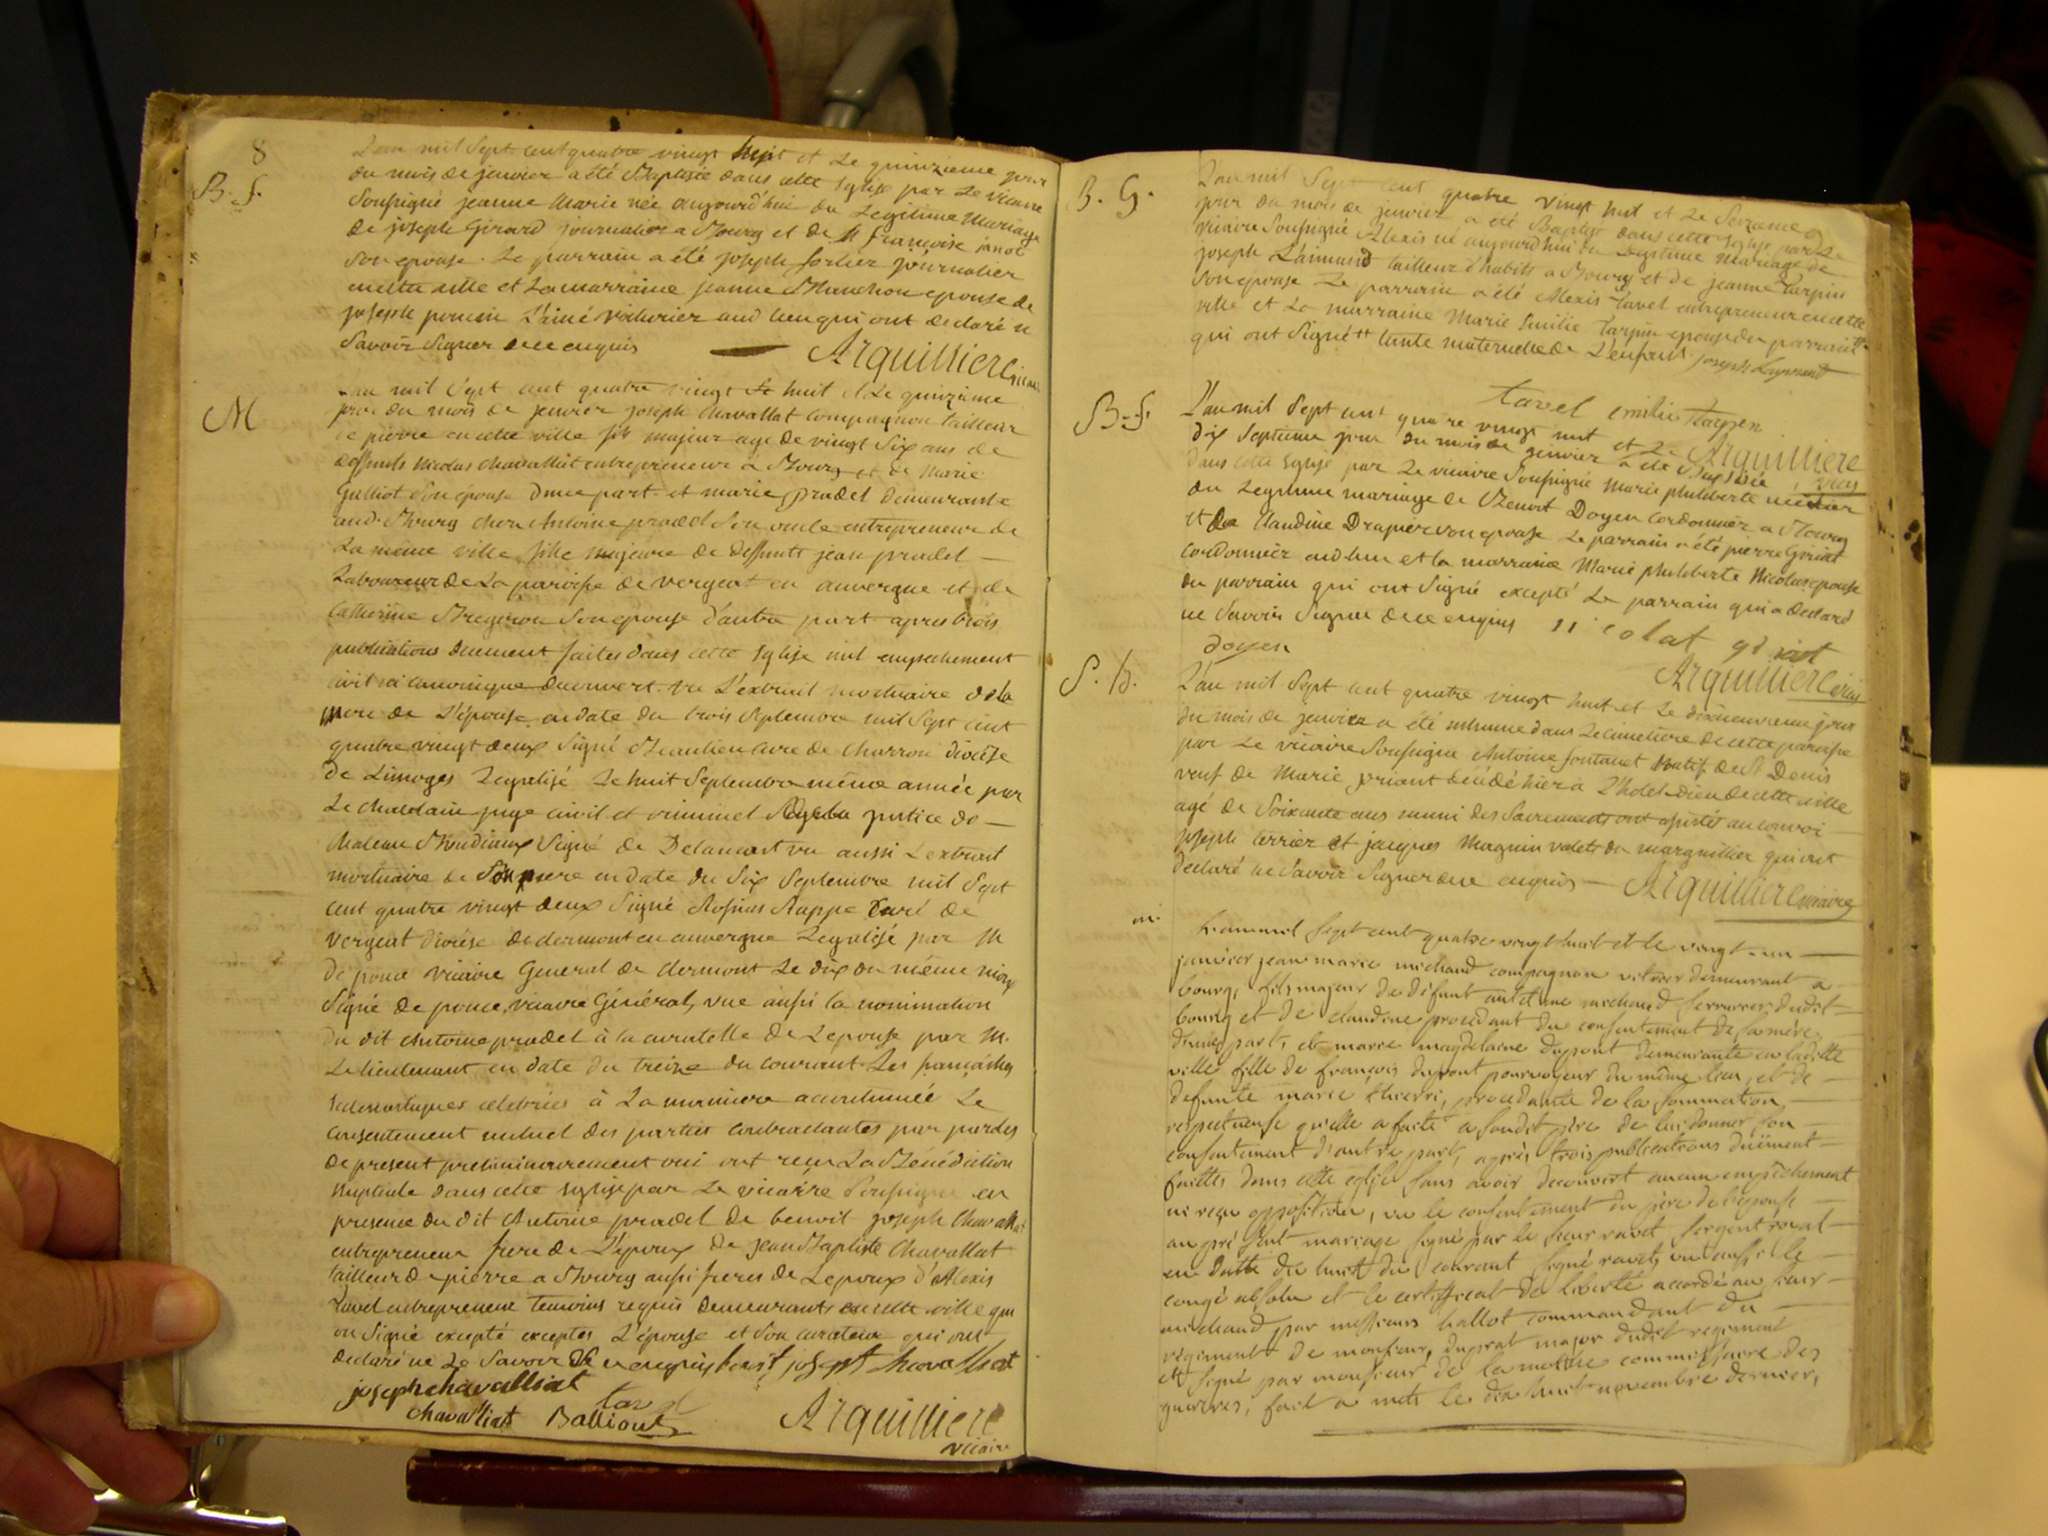 8
B. f.
L'an mil Sept cent quatre vingt huit et Le quinzieme jour
du mois de jenvier a été Baptisée dans cette Eglise par Le vicaire
Soussigné jeanne Marie née aujourd'hui du Legitime Mariage
de joseph Girard journalier a Bourg et de françoise
Son epouse. Le parrain a été joseph journalier
en cette ville et La marraine jeanne epouse de
joseph L'ainé voiturier aud lieu qui ont declaré ne
Savoir Signer de ce enquis Arquilliere vicaire
M
L'an mil Sept cent quatre vingt huit et Le quinzieme
jour du mois de jenvier joseph Chavallat Compagnon tailleur
de pierre en cette ville fils majeur agé de vingt Six ans de
deffunts Nicolas Chavalliat entrepreneur à Bourg et de Marie
Galliot Son épouse d'une part et marie pradel demeurante
aud. Bourg chez Antoine pradel Son oncle entrepreneur de
La même ville fille majeure de deffunts jean pradel —
Laboureur de La paroisse de vergeat en auvergne et de
Catherine Bregeron Son epouse d'autre part apres trois
publications duement faites dans cette Eglise nul empechement
civil ni canonique decouvert. vu L'extrait mortuaire de la
mere de L'épouse en date du trois Septembre mil Sept cent
quatre vingt deux Signé Beaulieu Curé de Charron diocèse
de Limoges Legalisé Le huit Septembre même année par
Le chatelain juge civil et criminel de la justice de —
Chateau Signé de vu aussi L'extrait
mortuaire de Son pere en date du Six Septembre mil Sept
cent quatre vingt deux Signé Curé de
vergeat diocèse de clermont en auvergne Legalisé par M
de ponce vicaire General de clermont Le dix du même mois
Signé de ponce, vicaire Général, vue aussi la nomination
du dit Antoine pradel à la curatelle de L'epouse par M.
Le lieutenant en date du treize du courant Les fiançailles
Eclesiastiques célebrées à La maniere accoutumée Le
consentement mutuel des parties contractantes par paroles
de present preliminairement oui ont reçu La Bénédiction
Nuptiale dans cette Eglise par Le vicaire Soussigné en
presence du dit Antoine pradel de benoit joseph Chavallat
entrepreneur frere de L'époux de jean Baptiste Chavallat
tailleur de pierre a Bourg aussi freres de L'epoux d'Alexis
Tavel entrepreneur temoins requis demeurants en cette ville qui
on Signé excepté exceptés L'épouse et Son curateur qui ont
declaré ne Le Savoir de ce enquis benoit joseph
joseph chavalliat
tavel
chavalliat Balliout
Arquilliere
vicaire
B. G.
L'an mil Sept cent quatre vingt huit et Le Seizieme
jour du mois de jenvier a été Baptisé dans cette Eglise par Le
vicaire Soussigné Alexis né aujourd'hui du Legitime Mariage de
joseph tailleur d'habits a Bourg et de jeanne Tarpin
Son epouse Le parrain a été Alexis Tavel entrepreneur en cette
ville et La marraine Marie Emilie Tarpin epouse du parrain
qui ont Signé tante maternelle de L'enfant. joseph
tavel emilie
Arquilliere
vicaire
B. f.
L'an mil Sept cent quatre vingt huit et Le
dix Septieme jour du mois de jenvier a été Baptisée
dans cette Eglise par Le vicaire Soussigné Marie philiberte née hier
du Legitime mariage de Benoit Doyen Cordonnier a Bourg
et de Claudine Drapier son epouse Le parrain a été pierre
cordonnier aud lieu et la marraine Marie philiberte Nicolas epouse
du parrain qui ont Signé excepté Le parrain qui a declaré
ne Savoir Signer de ce enquis nicolat
doyen
Arquilliere vicaire
S. h.
L'an mil Sept cent quatre vingt huit et Le dixneuvieme jour
du mois de jenvier a été inhumé dans Le Cimetiere de cette paroisse
par Le vicaire Soussigné Antoine fontanet Natif de St Denis
veuf de Marie décédé hier à L'hotel-Dieu de cette ville
agé de Soixante ans muni des Sacrements ont assisté au convoi
joseph terrier et jacques Magnin valets du marguillier qui ont
declaré ne Savoir Signer de ce enquis — Arquilliere vicaire
m.
L'an mil sept cent quatre vingt huit et le vingt-un —
janvier jean marie michaud compagnon vitrier demeurant a
bourg, fils majeur de défunt antoine michaud serrurier dudit
bourg et de claudine procedant du consentement de sa mere
d'une part, et marie magdelaine dupont demeurante en ladite
ville fille de françois dupont pourvoyeur du même lieu et de —
defunte marie thierri, procedante de la sommation
respectueuse qu'elle a faite a sondit père de lui donner son
consentement d'autre part, après trois publications düement
faites dans cette église sans avoir decouvert aucun empêchement
ni reçu opposition, vu le consentement du père de l'épouse
au présent mariage signé par le sieur ravet sergent royal
en datte du huit du courant signé ravet, vu aussi le —
congé absolu et le certificat de liberté accordé au sieur —
michaud par messieurs hallot commandant du —
régiment de monsieur, duprat major dudit regiment
et signé par monsieur de la motte commissaire des
guerres, fait a metz le dix huit novembre dernier,